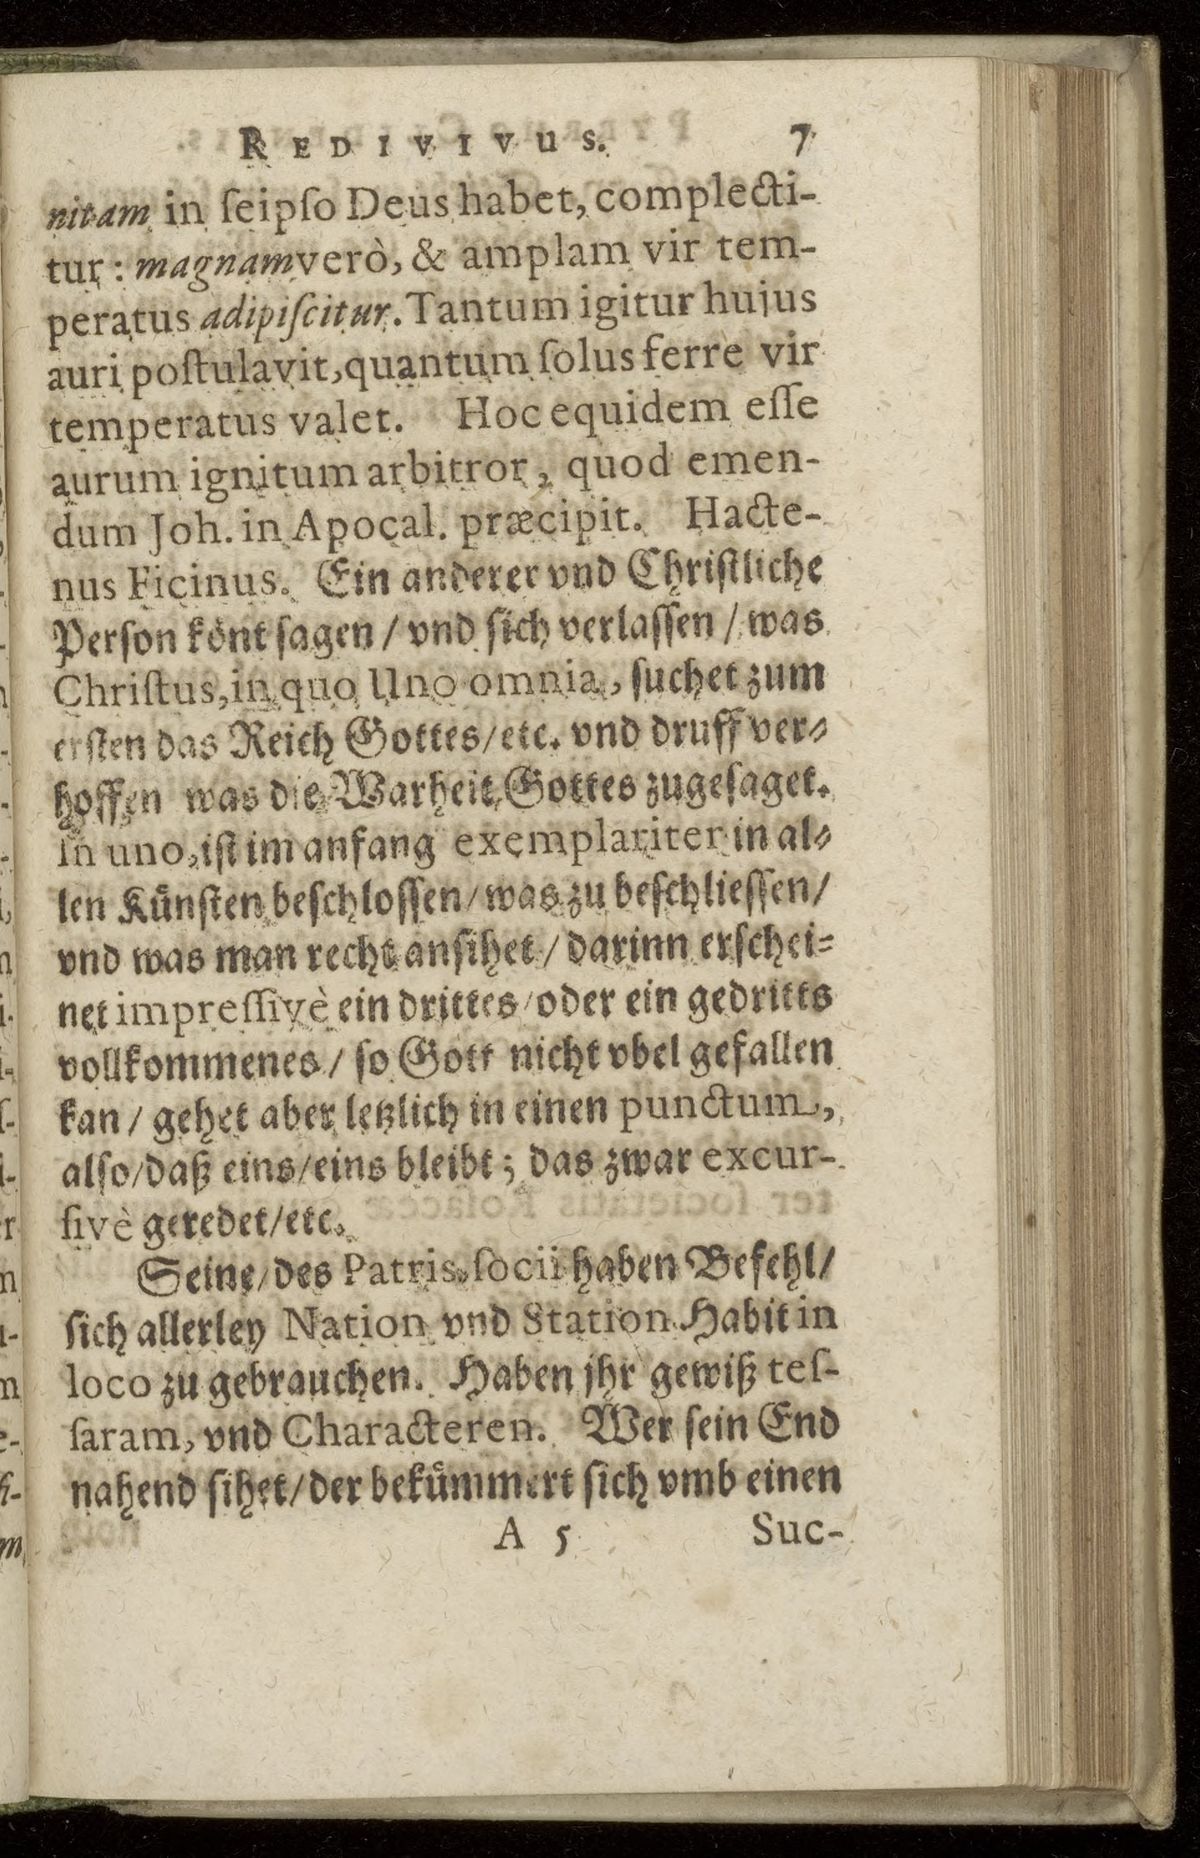 REDIVIVUS. 7
nitam in ſeipſo Deus habet, complecti-
tur: magnam verò, & amplam vir tem-
peratus adipiſcitur. Tantum igitur hujus
auri poſtulavit, quantum ſolus ferre vir
temperatus valet. Hoc equidem eſſe
aurum ignitum arbitror, quod emen-
dum Joh. in Apocal. præcipit. Hacte-
nus Ficinus. Ein anderer vnd Chriſtliche
Perſon könt ſagen / vnd ſich verlaſſen / was
Chriſtus, in quo Uno omnia, ſuchet zum
erſten das Reich Gottes / etc. vnd druff ver-
hoffen was die Warheit Gottes zugeſaget.
In uno, iſt im anfang exemplariter in al-
len Künſten beſchloſſen / was zu beſchlieſſen /
vnd was man recht anſihet / darinn erſchei-
net impreſſivè ein drittes / oder ein gedritts
vollkommenes / ſo Gott nicht vbel gefallen
kan / gehet aber letzlich in einen punctum,
alſo / daß eins / eins bleibt; das zwar excur-
ſivè geredet / etc.
Seine / des Patris, ſocii haben Befehl /
ſich allerley Nation vnd Station Habit in
loco zu gebrauchen. Haben jhr gewiß teſ-
ſaram, vnd Characteren. Wer ſein End
nahend ſihet / der bekümmert ſich vmb einen
A 5 Suc-